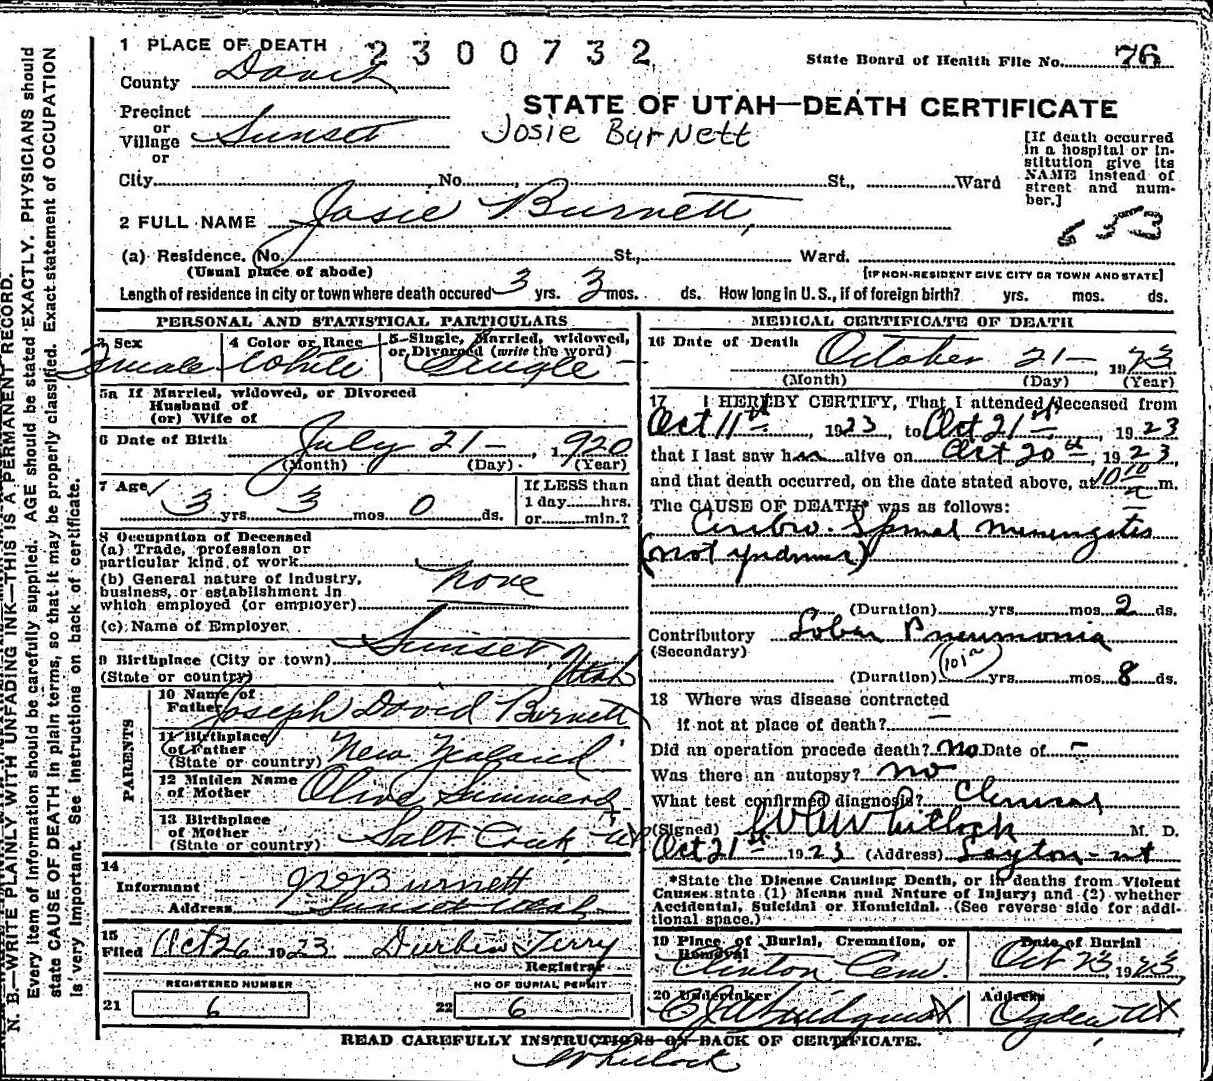 1 PLACE OF DEATH 2300732
State Board of Health File No. 76
County Davis
STATE OF UTAH—DEATH CERTIFICATE
Precinct
or
Village Sunset
or
Josie Burnett
[If death occurred
in a hospital or in-
stitution give its
NAME instead of
street and num-
ber.]
City No. St., Ward
2 FULL NAME Josie Burnett,
653
(a) Residence. (No. St., Ward.
(Usual place of abode)
[IF NON-RESIDENT GIVE CITY OR TOWN AND STATE]
Length of residence in city or town where death occured 3 yrs. 3 mos. ds. How long in U. S., if of foreign birth? yrs. mos. ds.
PERSONAL AND STATISTICAL PARTICULARS
3 Sex
Female
4 Color or Race
White
5 Single, Married, widowed,
or Divorced (write the word)
Single
5a If Married, widowed, or Divorced
Husband of
(or) Wife of
6 Date of Birth July 21 - 1920
(Month) (Day) (Year)
7 Age
3 yrs. 3 mos. 0 ds.
If LESS than
1 day hrs.
or min.?
8 Occupation of Deceased
(a) Trade, profession or
particular kind of work
(b) General nature of industry,
business, or establishment in
which employed (or employer) none
(c) Name of Employer
9 Birthplace (City or town) Sunset
(State or country) Utah
PARENTS
10 Name of
Father Joseph David Burnett
11 Birthplace
of Father
(State or country) New Zealand
12 Maiden Name
of Mother Olive
13 Birthplace
of Mother
(State or country) Salt Creek
14
Informant J D Burnett
Address Sunset Utah
15
Filed Oct 26 1923 Durbin Terry
Registrar
REGISTERED NUMBER
21 6
NO OF BURIAL PERMIT
22 6
MEDICAL CERTIFICATE OF DEATH
16 Date of Death October 21 - 1923
(Month) (Day) (Year)
17 I HEREBY CERTIFY, That I attended deceased from
Oct 11th, 1923, to Oct 21st, 1923
that I last saw her alive on Oct 20th, 1923,
and that death occurred, on the date stated above, at 10 m.
The CAUSE OF DEATH* was as follows:
Cerebro-Spinal Meningitis
(not
(Duration) yrs. mos. 2 ds.
Contributory Lobar Pneumonia
(Secondary)
(Duration) yrs. mos. 8 ds.
18 Where was disease contracted
if not at place of death? —
Did an operation precede death? no Date of —
Was there an autopsy? no
What test confirmed diagnosis? Clinical
(Signed) Whitlock M. D.
Oct 21st 1923 (Address) Layton - Ut
*State the Disease Causing Death, or in deaths from Violent
Causes state (1) Means and Nature of Injury; and (2) whether
Accidental, Suicidal or Homicidal. (See reverse side for addi-
tional space.)
19 Place of Burial, Cremation, or
Removal
Clinton Cem.
Date of Burial
Oct 23 1923
20 Undertaker
Address
Ogden, Ut
READ CAREFULLY INSTRUCTIONS ON BACK OF CERTIFICATE.
Whitlock
N. B.—WRITE PLAINLY WITH UNFADING INK—THIS IS A PERMANENT RECORD.
Every item of information should be carefully supplied. AGE should be stated EXACTLY. PHYSICIANS should
state CAUSE OF DEATH in plain terms, so that it may be properly classified. Exact statement of OCCUPATION
is very important. See instructions on back of certificate.